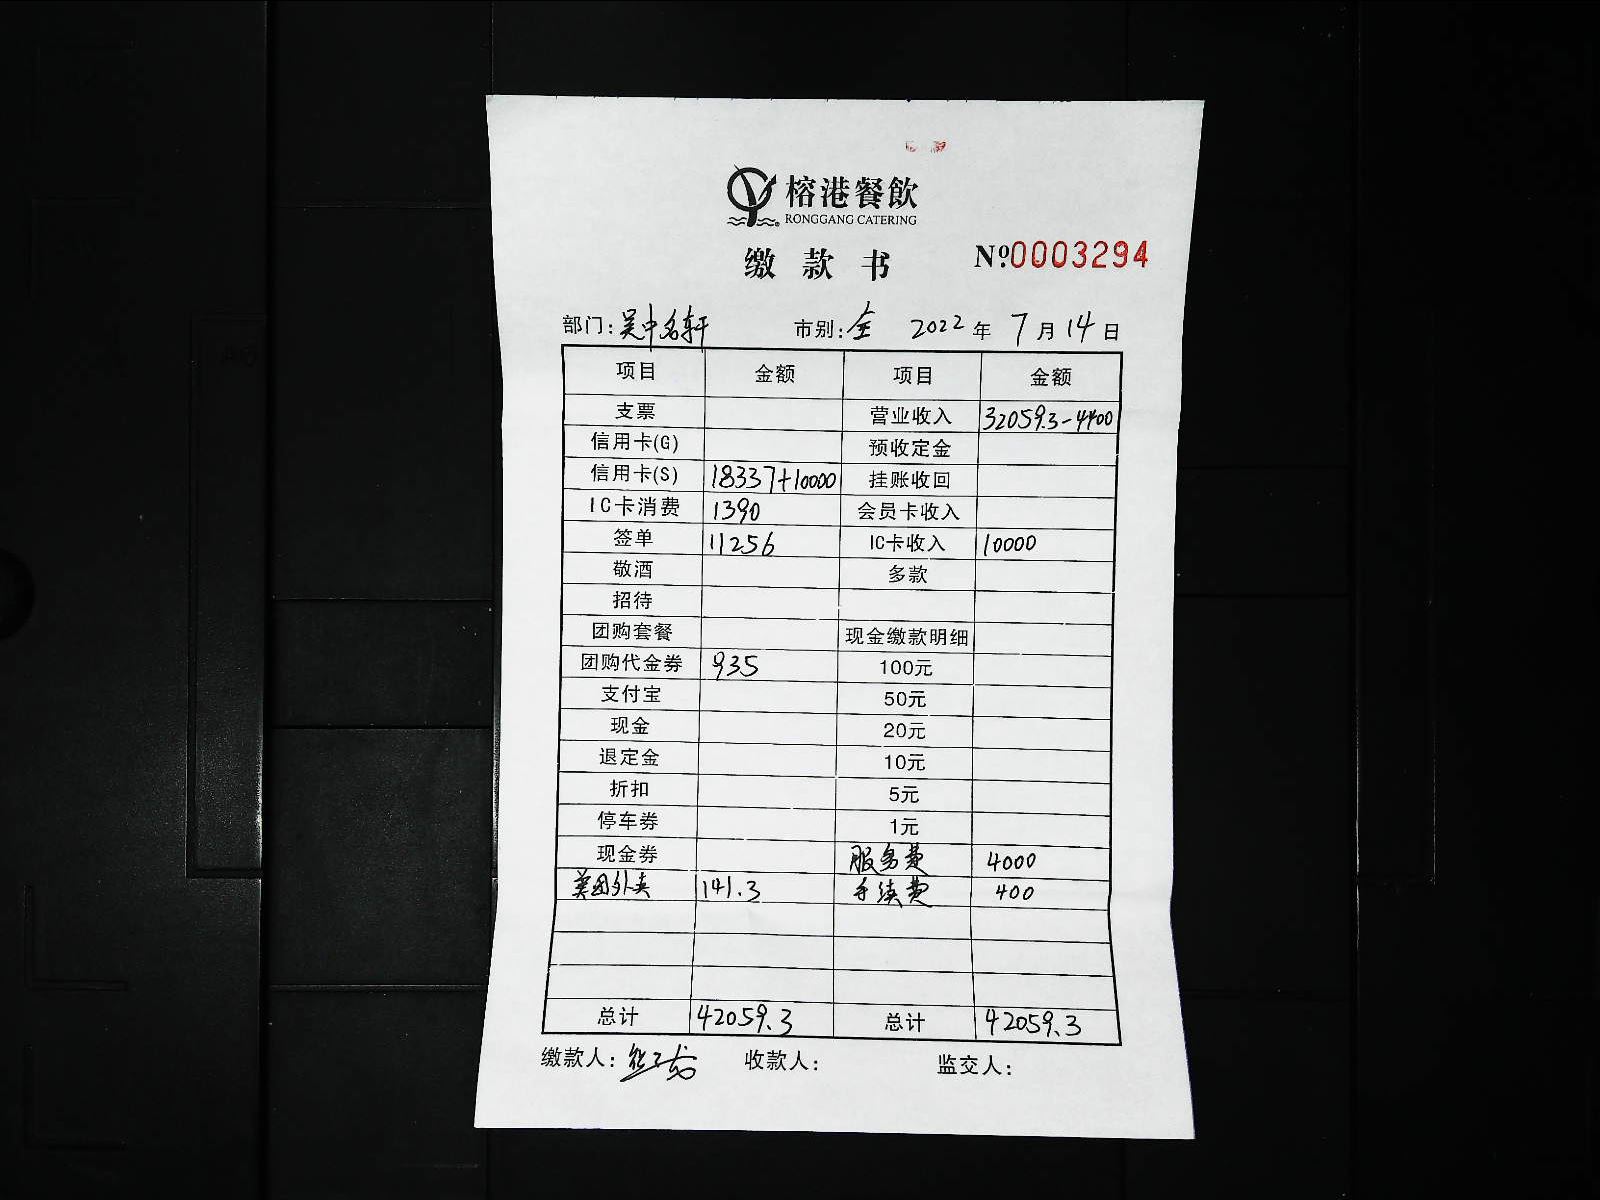 榕港餐飲
RONGGANG CATERING
缴款书 Nº0003294
部门:吴中名轩 市别:全 2022年7月14日
项目 金额 项目 金额
支票 营业收入 32059.3-4400
信用卡(G) 预收定金
信用卡(S) 18337+10000 挂账收回
IC卡消费 1390 会员卡收入
签单 11256 IC卡收入 10000
敬酒 多款
招待
团购套餐 现金缴款明细
团购代金券 935 100元
支付宝 50元
现金 20元
退定金 10元
折扣 5元
停车券 1元
现金券 服务费 4000
美团外卖 141.3 手续费 400
总计 42059.3 总计 42059.3
缴款人: 收款人: 监交人: